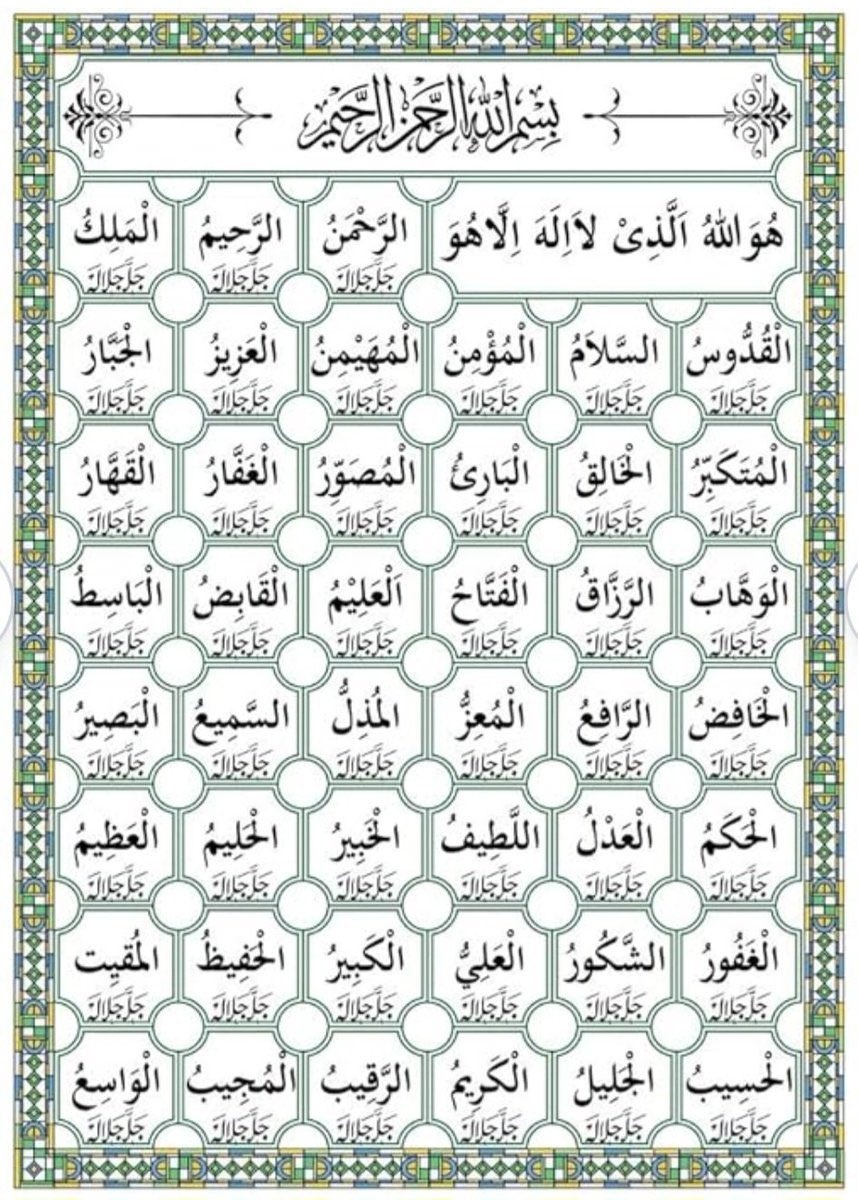 بِسْمِ اللهِ الرَّحْمٰنِ الرَّحِيْمِ
هُوَ اللهُ اَلَّذِىْ لاَ اِلَهَ اِلَّا هُوَ الرَّحْمٰنُ الرَّحِيمُ الْمَلِكُ
جَلَّ جَلَالُهُ جَلَّ جَلَالُهُ جَلَّ جَلَالُهُ
الْقُدُّوسُ السَّلاَمُ الْمُؤْمِنُ الْمُهَيْمِنُ الْعَزِيزُ الْجَبَّارُ
جَلَّ جَلَالُهُ جَلَّ جَلَالُهُ جَلَّ جَلَالُهُ جَلَّ جَلَالُهُ جَلَّ جَلَالُهُ جَلَّ جَلَالُهُ
الْمُتَكَبِّرُ الْخَالِقُ الْبَارِئُ الْمُصَوِّرُ الْغَفَّارُ الْقَهَّارُ
جَلَّ جَلَالُهُ جَلَّ جَلَالُهُ جَلَّ جَلَالُهُ جَلَّ جَلَالُهُ جَلَّ جَلَالُهُ جَلَّ جَلَالُهُ
الْوَهَّابُ الرَّزَّاقُ الْفَتَّاحُ اَلْعَلِيْمُ الْقَابِضُ الْبَاسِطُ
جَلَّ جَلَالُهُ جَلَّ جَلَالُهُ جَلَّ جَلَالُهُ جَلَّ جَلَالُهُ جَلَّ جَلَالُهُ جَلَّ جَلَالُهُ
الْخَافِضُ الرَّافِعُ الْمُعِزُّ المُذِلُّ السَّمِيعُ الْبَصِيرُ
جَلَّ جَلَالُهُ جَلَّ جَلَالُهُ جَلَّ جَلَالُهُ جَلَّ جَلَالُهُ جَلَّ جَلَالُهُ جَلَّ جَلَالُهُ
الْحَكَمُ الْعَدْلُ اللَّطِيفُ الْخَبِيرُ الْحَلِيمُ الْعَظِيمُ
جَلَّ جَلَالُهُ جَلَّ جَلَالُهُ جَلَّ جَلَالُهُ جَلَّ جَلَالُهُ جَلَّ جَلَالُهُ جَلَّ جَلَالُهُ
الْغَفُورُ الشَّكُورُ الْعَلِيُّ الْكَبِيرُ الْحَفِيظُ المُقيِت
جَلَّ جَلَالُهُ جَلَّ جَلَالُهُ جَلَّ جَلَالُهُ جَلَّ جَلَالُهُ جَلَّ جَلَالُهُ جَلَّ جَلَالُهُ
الْحَسِيبُ الْجَلِيلُ الْكَرِيمُ الرَّقِيبُ الْمُجِيبُ الْوَاسِعُ
جَلَّ جَلَالُهُ جَلَّ جَلَالُهُ جَلَّ جَلَالُهُ جَلَّ جَلَالُهُ جَلَّ جَلَالُهُ جَلَّ جَلَالُهُ